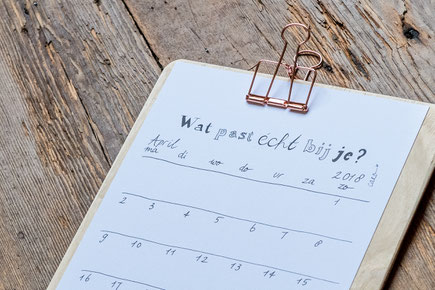 Wat past écht bij je?
April 2018
ma di wo do vr za zo
1
2 3 4 5 6 7 8
9 10 11 12 13 14 15
16 17